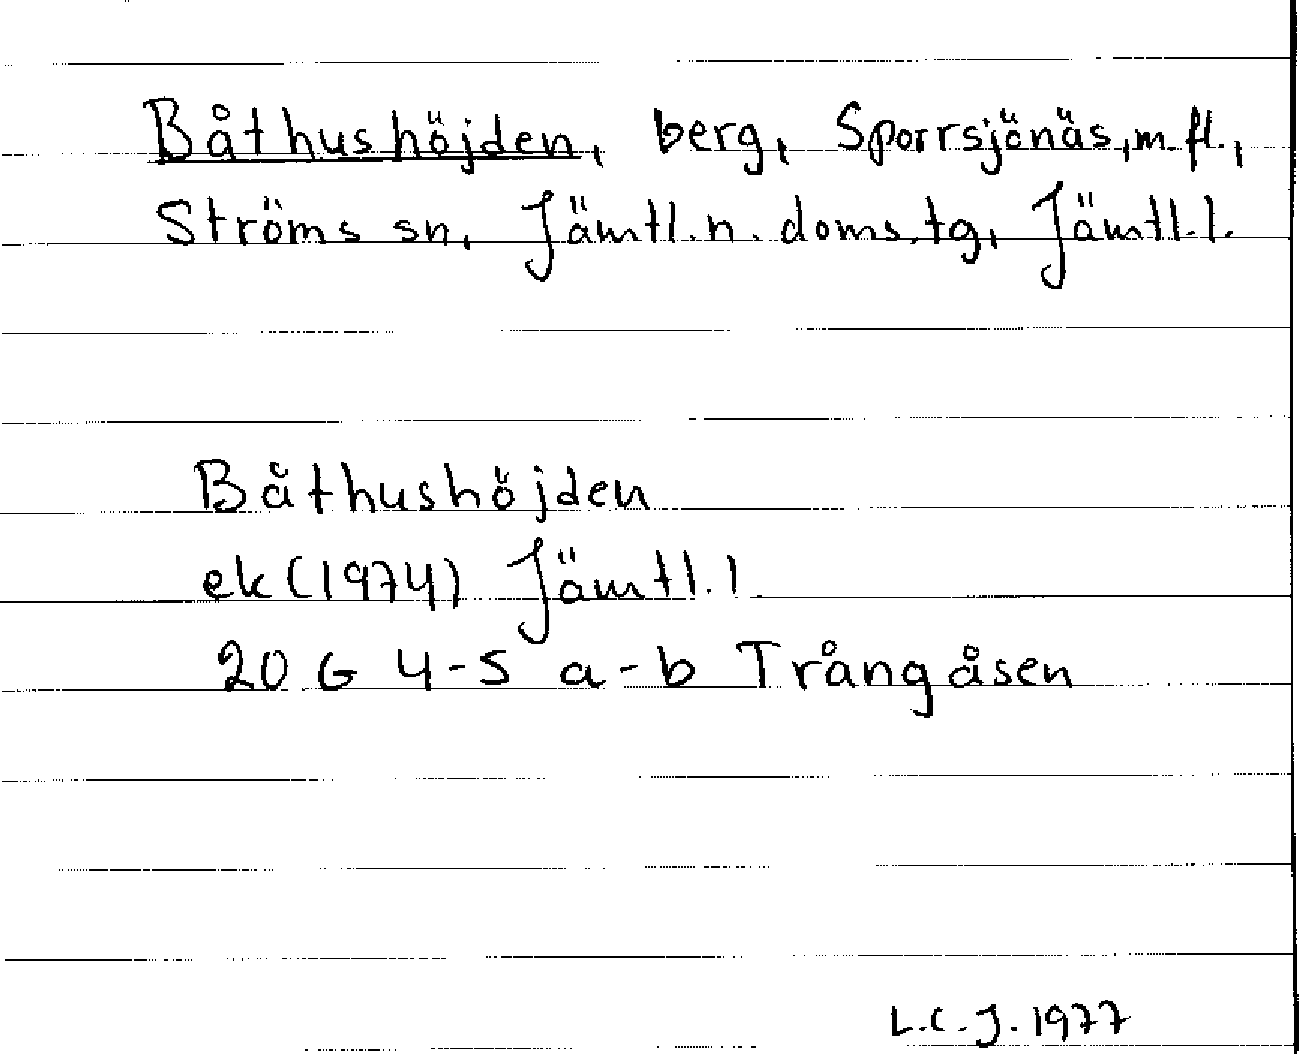 Båthushöjden, berg, Sporrsjönäs, m.fl.,
Ströms sn, Jämtl.n. doms.tg, Jämtl.l.
Båthushöjden
ek (1974) Jämtl.l
20 G 4-5 a-b Trångåsen
L.C.J. 1977